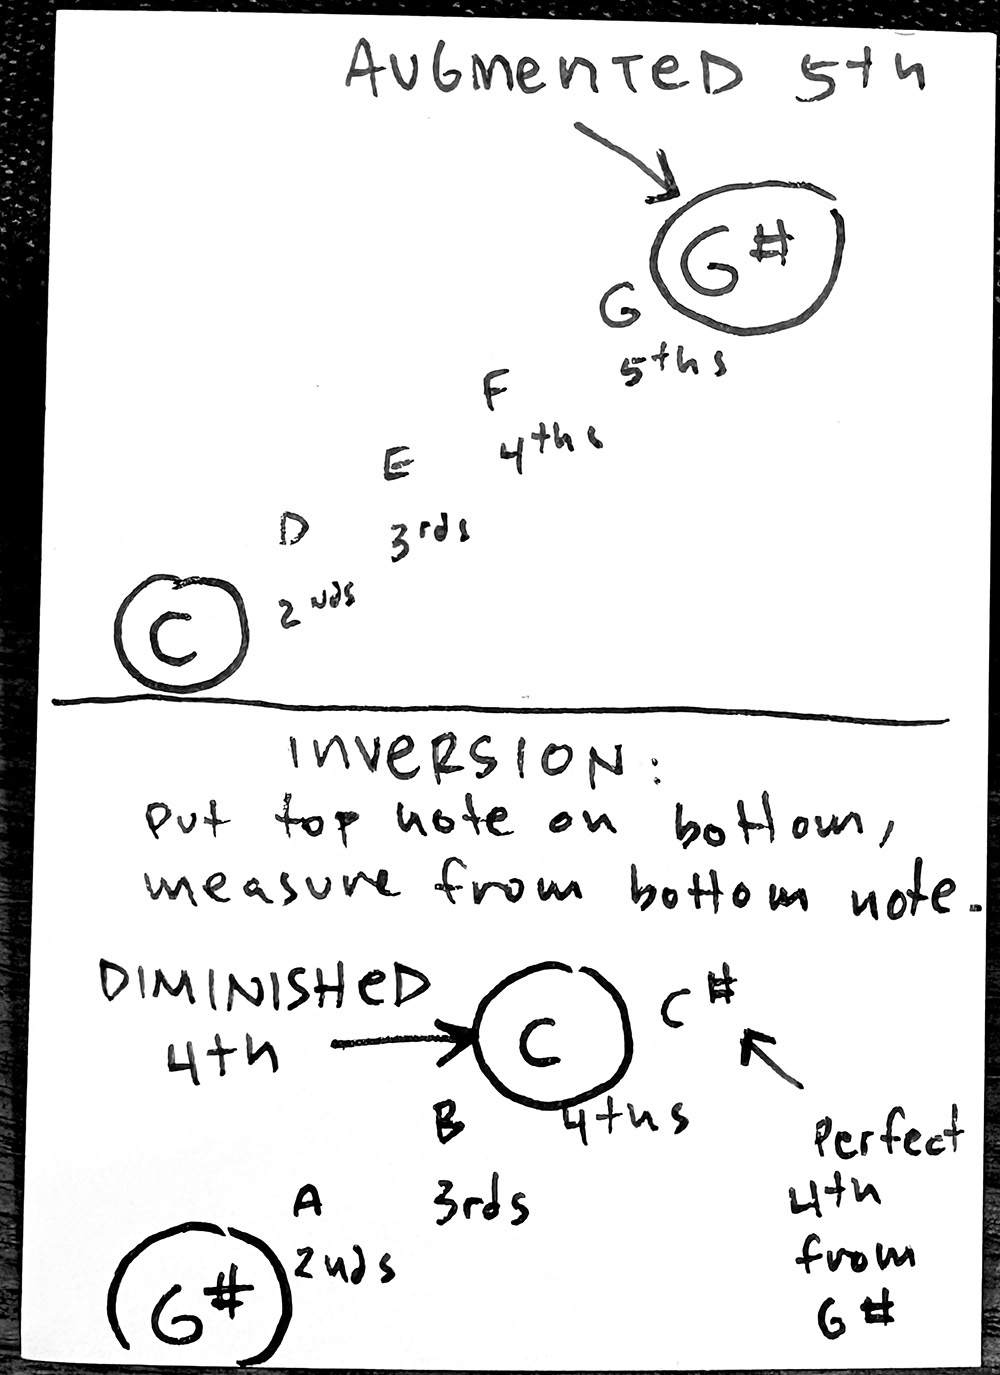 AUGmenTeD 5th
G#
G
5ths
F
4ths
E
3rds
D
2nds
C
INVeRSION:
Put top note on bottom,
measure from bottom note.
DIMINISHeD
4th
C
C#
B
4ths
Perfect
4th
from
G#
A
3rds
2nds
G#